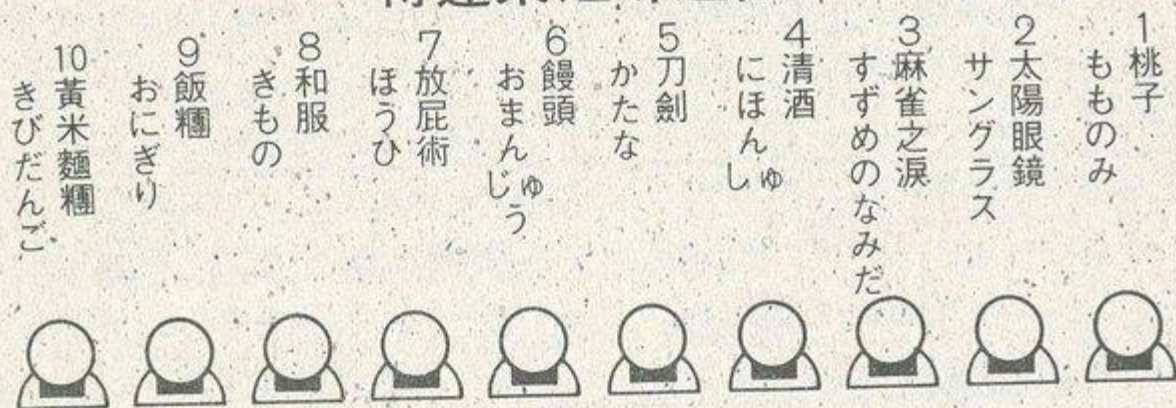 1桃子
もものみ
2太陽眼鏡
サングラス
3麻雀之淚
すずめのなみだ
4清酒
にほんしゅ
5刀劍
かたな
6饅頭
おまんじゅう
7放屁術
ほうひ
8和服
きもの
9飯糰
おにぎり
10黃米麵糰
きびだんご